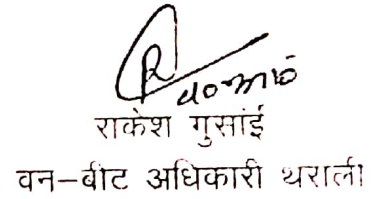 राकेश गुसांई
वन–बीट अधिकारी थराली